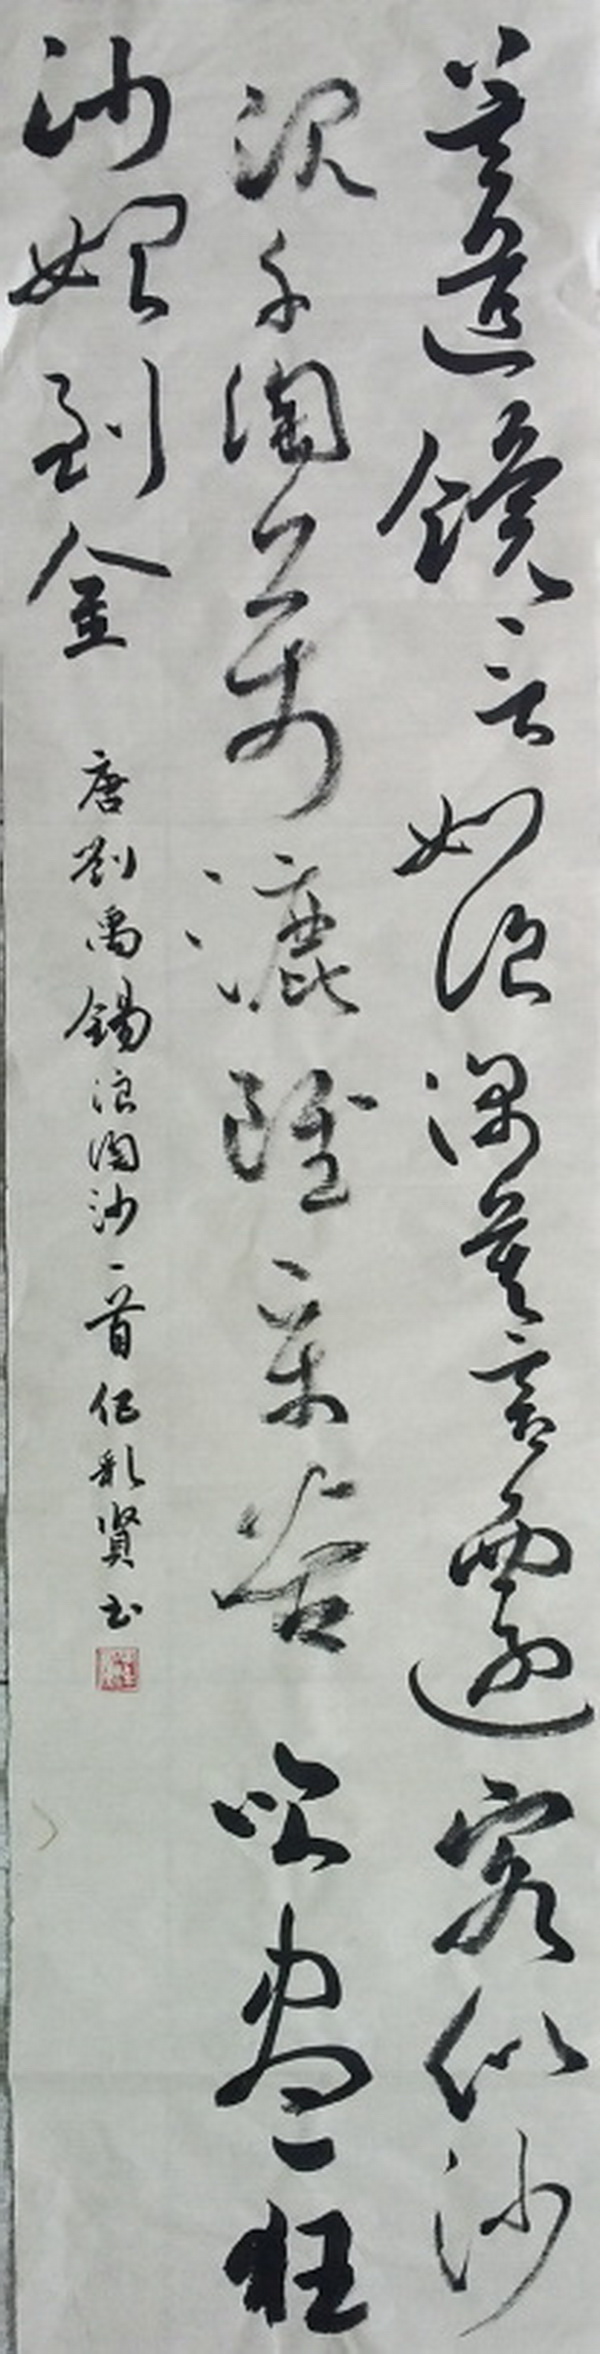 莫道讒言如浪深莫言遷客似沙
沉千淘萬漉雖辛苦吹盡狂
沙始到金
唐劉禹錫浪淘沙一首任彩賢书